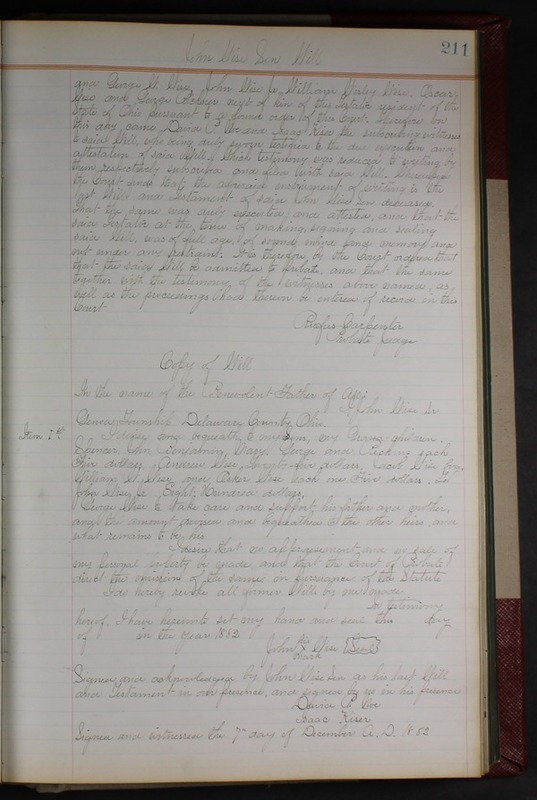 John Wise Sen Will
211
and George W Wise, John Wise Jr, William Wise, Oscar
Wise and George next of kin of the Testator resident of the
State of Ohio pursuant to a former order of this Court. Therefore on
this day came David C and Isaac Kiser the subscribing witnesses
to said Will, who being duly sworn testified to the due execution and
attestation of said Will, which testimony was reduced to writing by
them respectively subscribed and filed with said Will. Whereupon
the Court finds that the aforesaid instrument of writing is the
last Will and Testament of said John Wise Sen deceased.
That the same was duly executed and attested, and that the
said Testator at the time of making, signing and sealing
said Will, was of full age, of sound mind and memory and
not under any restraint. It is therefore by the Court ordered that
that the said Will be admitted to probate, and that the same
together with the testimony of the witnesses above named, as
well as the proceedings had therein be entered of record in this
Court
Rufus Carpenter
Probate Judge
Copy of Will
In the name of the Benevolent Father of All,
I John Wise Sr
Township Delaware County, Ohio.
Item 1st
I devise and bequeath to my grand children,
Spencer, John, Benjamin, Mary, George and each
Five dollars, Andrew Wise dollars, Jacob Wise
William W. Wise and Wise each one Five dollars. To
John Wise Jr Eight Hundred dollars.
George Wise to take care and support his father and mother,
and the amount devised and bequeathed to the other heirs, and
what remains to be his
I desire that no appraisement and no sale of
my personal property be made, and that the Court of Probate
direct the omission of the same in pursuance of the Statute
I do hereby revoke all former Wills by me made
In testimony
hereof, I have hereunto set my hand and seal this day
of in the year 1882
John his mark Wise Seal
Signed and acknowledged by John Wise Sen as his last Will
and Testament in our presence, and signed by us in his presence
David C.
Isaac Kiser
Signed and witnessed the 7th day of December A.D. 1882